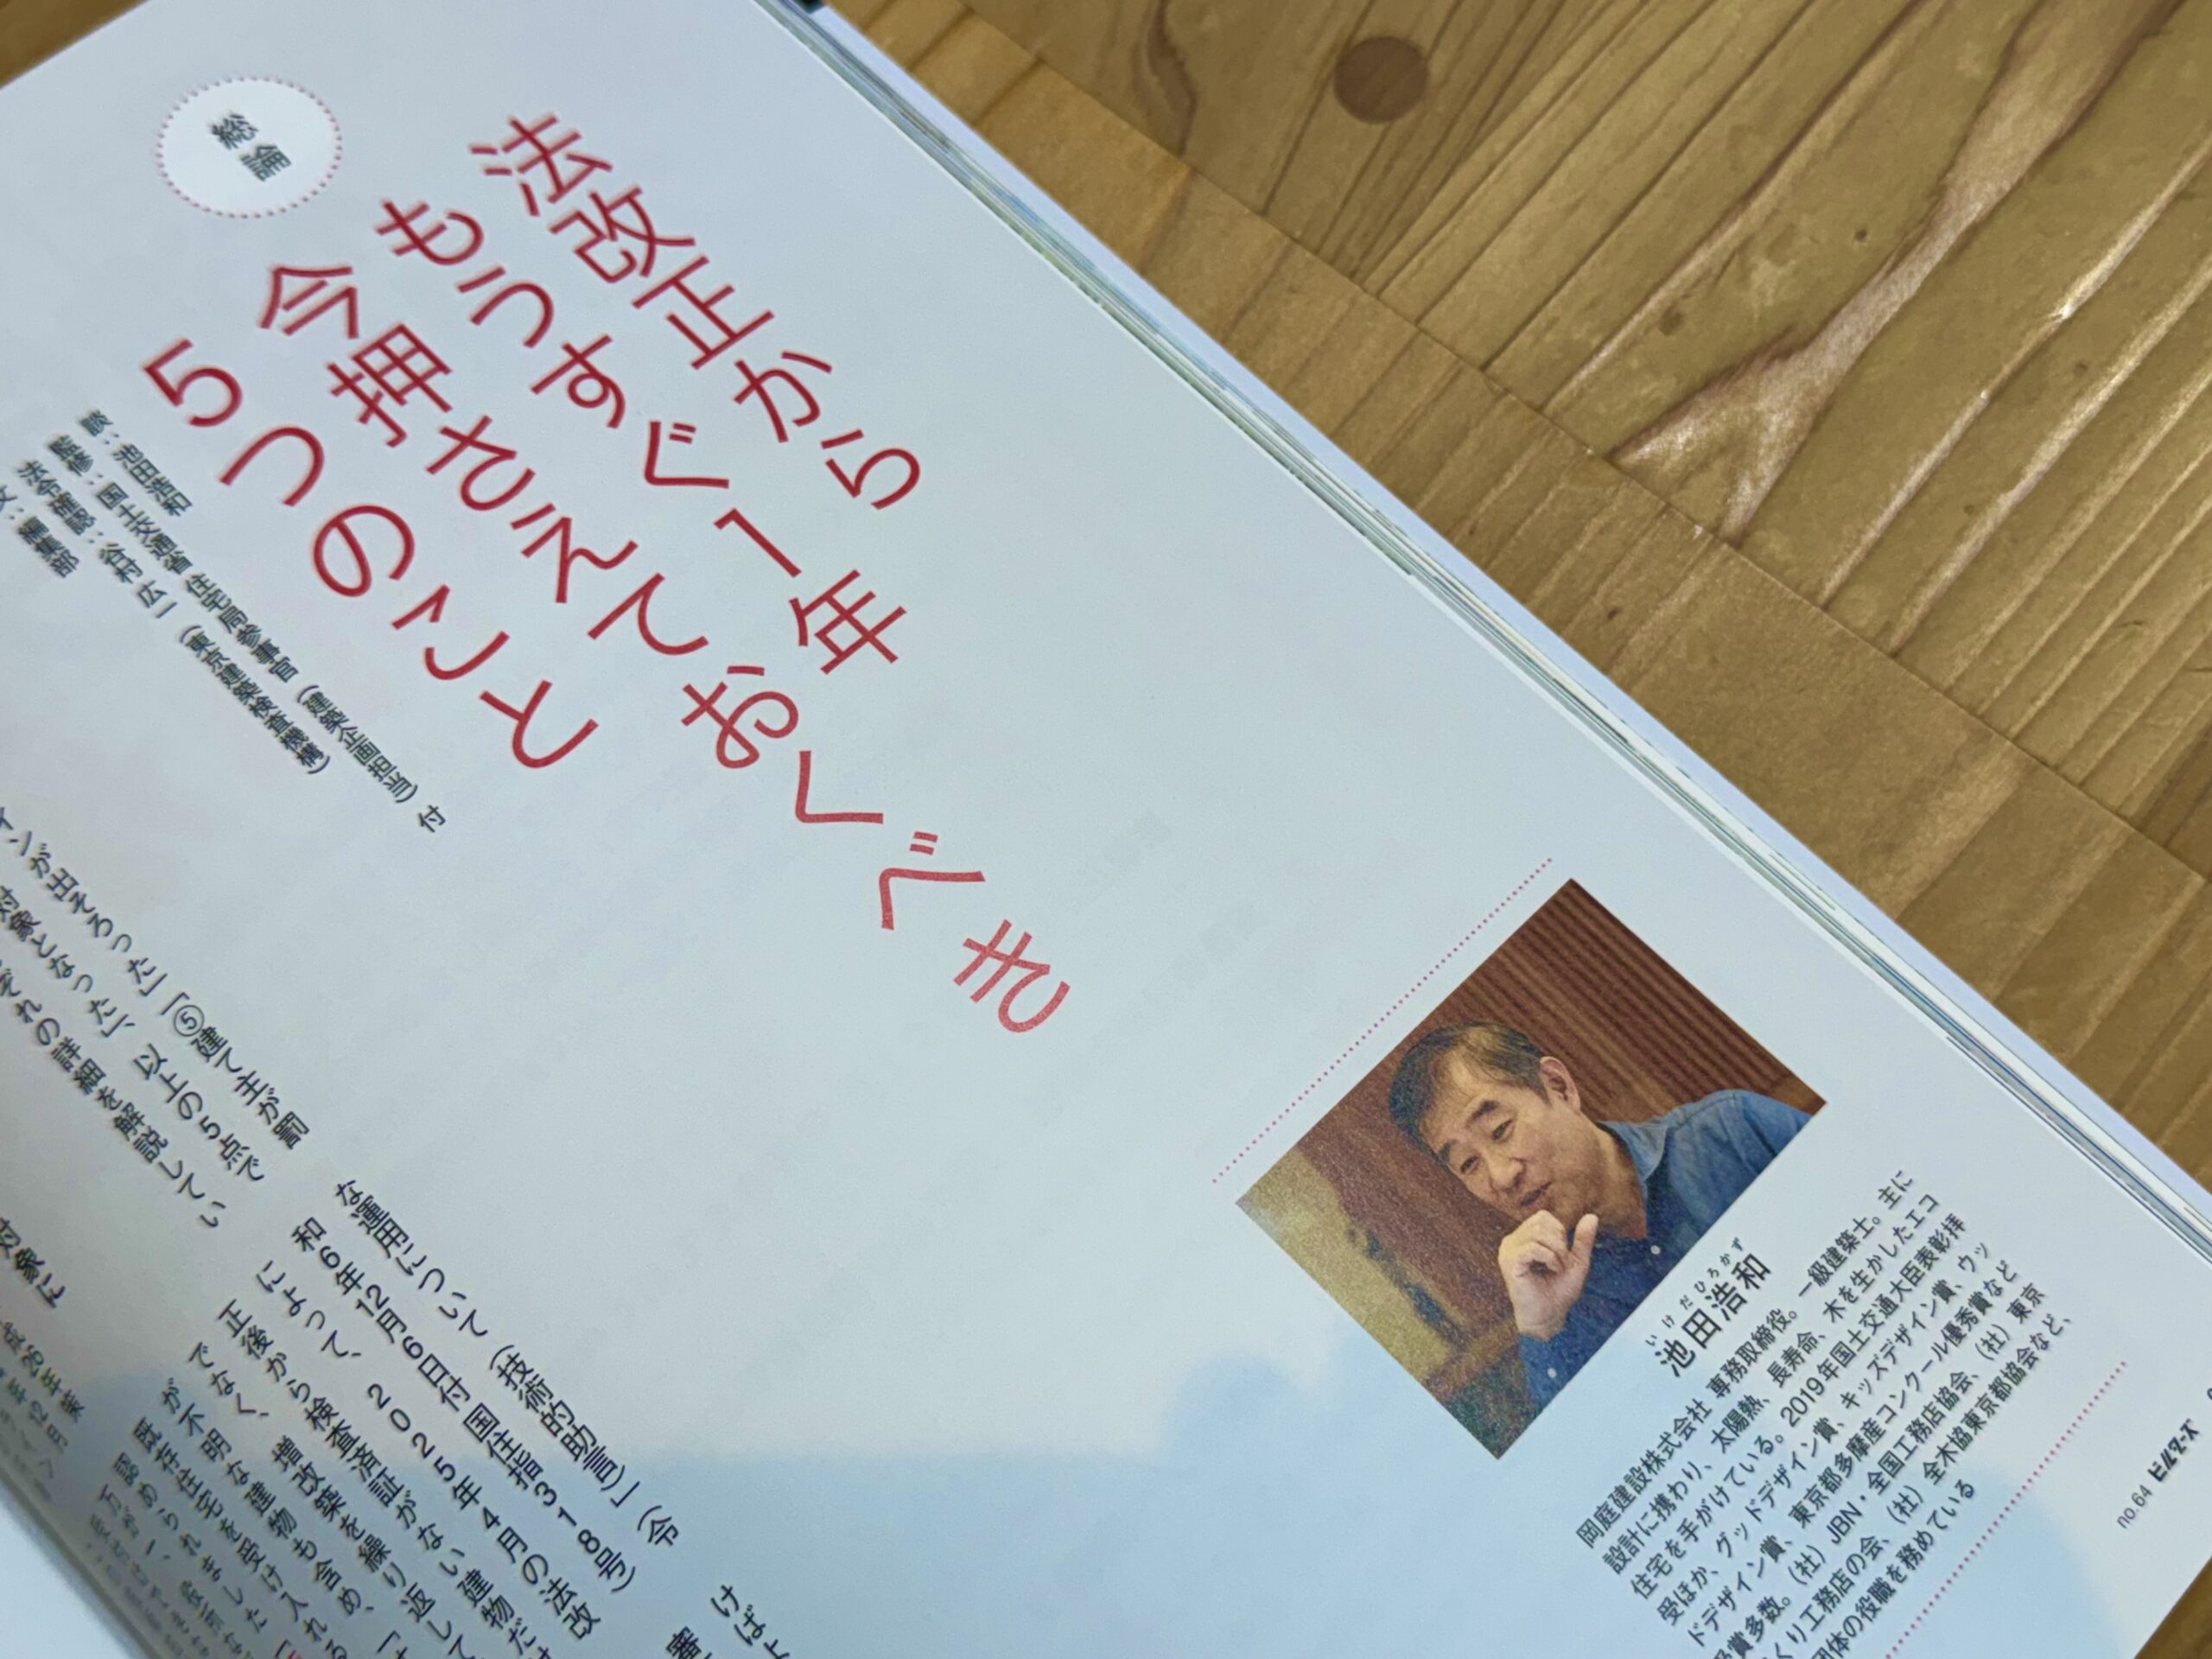 総論
法改正から
もうすぐ1年
今押さえておくべき
5つのこと
談：池田浩和
監修：国土交通省 住宅局参事官（建築企画担当）付
法令確認：谷村 広一（東京建築検査機構）
文：編集部
インが出そろった」「⑤建て主が罰
対象となった」、以上の5点で
ぞれの詳細を解説してい
対象に
な運用について（技術的助言）」（令
和6年12月6日付 国住指318号）
によって、2025年4月の法改
正後から検査済証がない建物だけ
でなく、増改築を繰り返して
が不明な建物も含め、
既存住宅を受け入れる
認められました
けばよ
審
いけだひろかず
池田浩和
岡庭建設株式会社 専務取締役。一級建築士。主に
設計に携わり、太陽熱、長寿命、木を生かしたエコ
住宅を手がけている。2019年国土交通大臣表彰拝
受ほか、グッドデザイン賞、キッズデザイン賞、ウッ
ドデザイン賞、東京都多摩産コンクール優秀賞など
受賞多数。（社）JBN・全国工務店協会、（社）東京
くり工務店の会、（社）全木協東京都協会など、
団体の役職を務めている
no.64 ビルダーズ